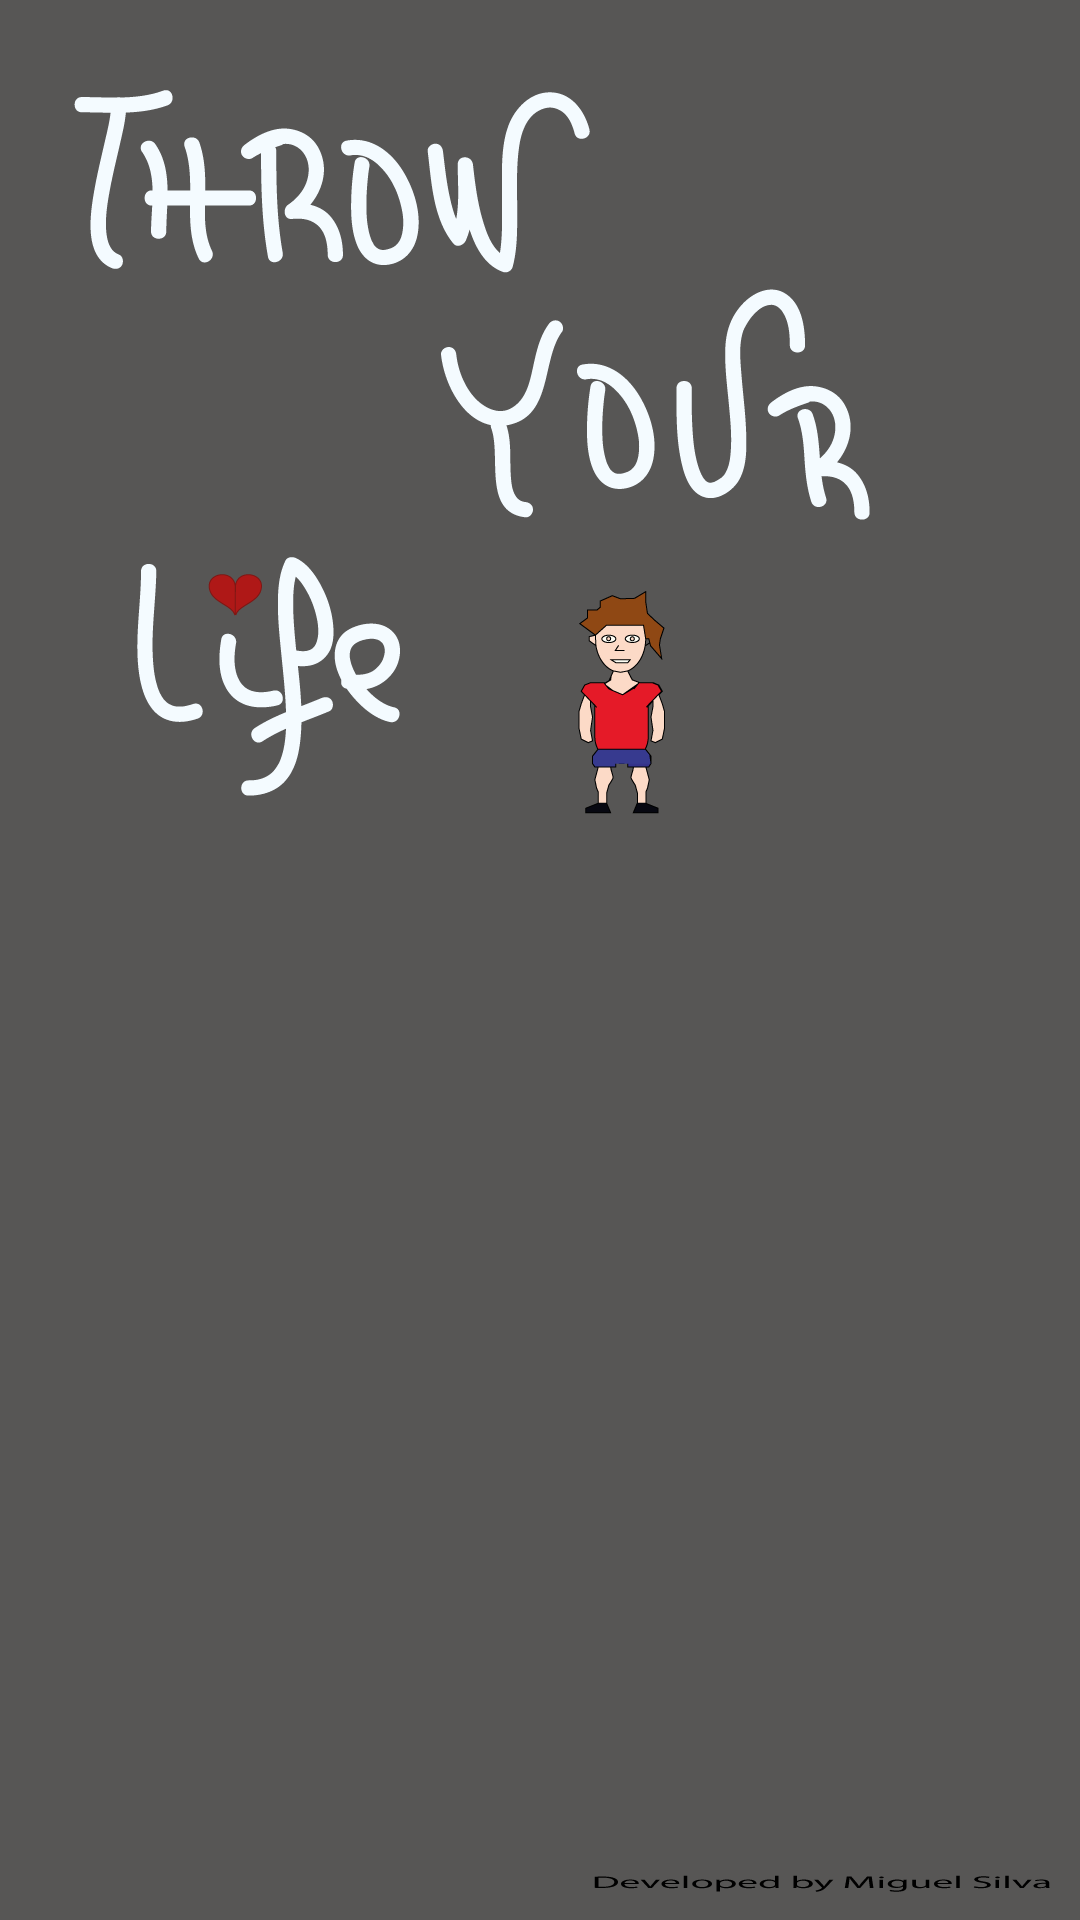 THROW
YOUR
Life
Developed by Miguel Silva